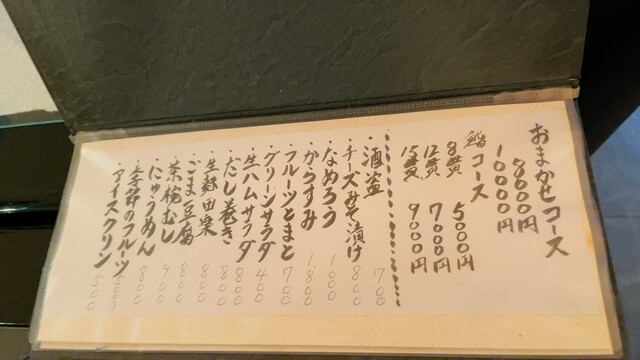 おまかせコース
8000円
10000円
鮨コース
8貫 5000円
12貫 7000円
15貫 9000円
・酒盗 700
・チーズみそ漬け 800
・なめろう 1000
・からすみ 1800
・フルーツとまと 700
・グリーンサラダ 400
・生ハムサラダ 800
・だし巻き 800
・生麩田楽 800
・ごま豆腐 800
・茶椀むし 900
・にゅうめん 800
・季節のフルーツ
・アイスクリン 500